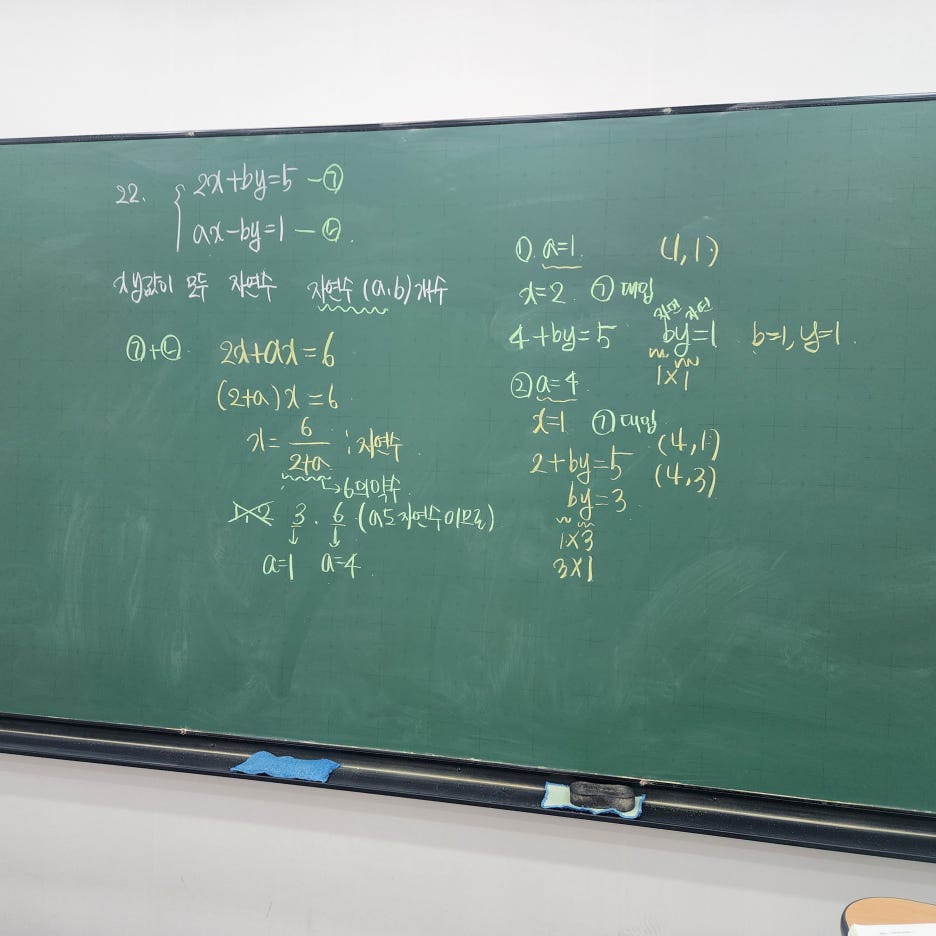 22. 2x+by=5 -㉠
ax-by=1 -㉡.
x,y값이 모두 자연수 자연수 (a,b) 개수
㉠+㉡. 2x+ax=6
(2+a)x=6
x=6/(2+a) ; 자연수
→6의 약수.
1, 2 3. 6 (a도 자연수이므로)
↓ ↓
a=1 a=4
① a=1 (1,1)
x=2 ㉠ 대입
자연 자연
4+by=5 by=1 b=1, y=1.
1×1
② a=4
x=1 ㉠ 대입
(4,1)
2+by=5 (4,3)
by=3
1×3
3×1